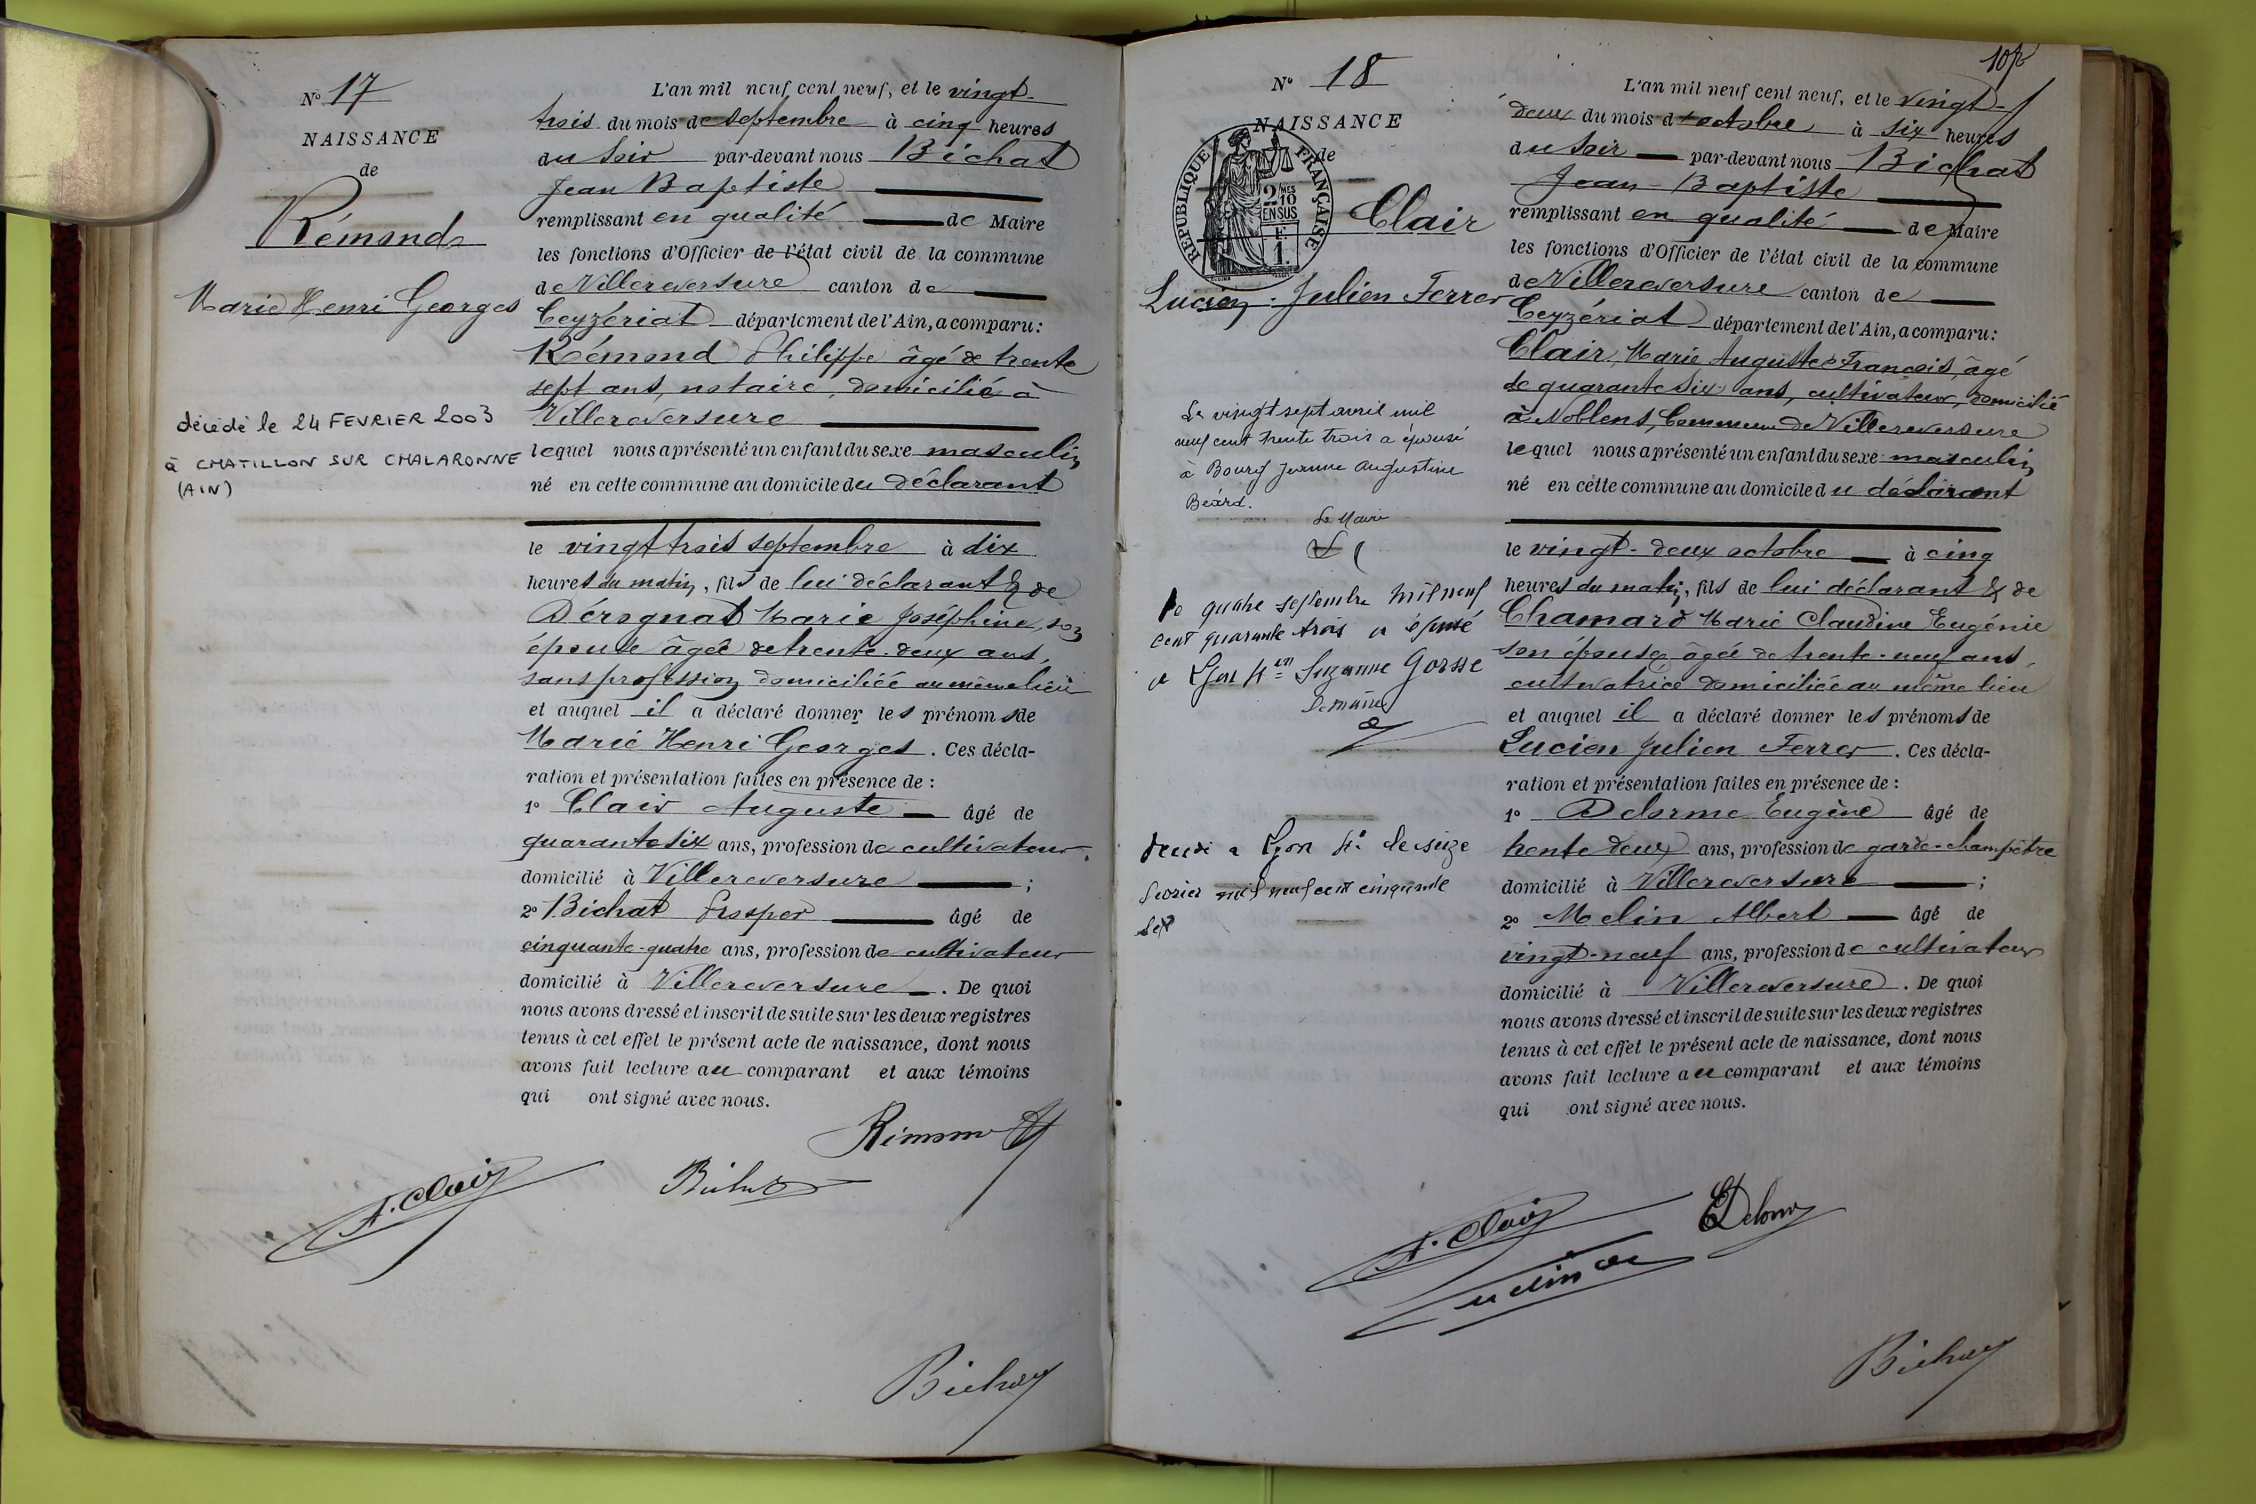 N° 17
NAISSANCE
de
Rémond
Marie Henri Georges
décédé le 24 FEVRIER 2003
à CHATILLON SUR CHALARONNE
(AIN)
L'an mil neuf cent neuf, et le vingt-
trois du mois de septembre à cinq heures
du soir par-devant nous Bichat
Jean Baptiste
remplissant en qualité de Maire
les fonctions d'Officier de l'état civil de la commune
de Villereversure canton de
Ceyzériat département de l'Ain, a comparu:
Rémond Philippe âgé de trente
sept ans, notaire, domicilié à
Villereversure
lequel nous a présenté un enfant du sexe masculin
né en cette commune au domicile du déclarant
le vingt trois septembre à dix
heures du matin, fils de lui déclarant & de
Dérognat Marie Joséphine, son
épouse âgée de trente-deux ans,
sans profession domiciliée au même lieu
et auquel il a déclaré donner les prénoms de
Marie Henri Georges. Ces décla-
ration et présentation faites en présence de :
1° Clair Auguste âgé de
quarante six ans, profession de cultivateur,
domicilié à Villereversure ;
2° Bichat Prosper âgé de
cinquante-quatre ans, profession de cultivateur
domicilié à Villereversure. De quoi
nous avons dressé et inscrit de suite sur les deux registres
tenus à cet effet le présent acte de naissance, dont nous
avons fait lecture au comparant et aux témoins
qui ont signé avec nous.
Rémond
A. Clair
Bichat
Bichat
107
N° 18
NAISSANCE
de
RÉPUBLIQUE FRANÇAISE
2 MES
10
EN SUS
E.
1.
Clair
Lucien Julien Ferrer
Le vingt sept avril mil
neuf cent trente trois a épousé
à Bourg Jeanne Augustine
Béard.
Le Maire
Le quatre septembre mil neuf
cent quarante trois a épousé
a Lyon 4e Suzanne Gorsse
Le maire
Décédé a Lyon 4e le seize
fevrier mil neuf cent cinquante
sept
L'an mil neuf cent neuf, et le vingt-
deux du mois d'octobre à six heures
du soir par-devant nous Bichat
Jean-Baptiste
remplissant en qualité de Maire
les fonctions d'Officier de l'état civil de la commune
de Villereversure canton de
Ceyzériat département de l'Ain, a comparu:
Clair, Marie Auguste François, âgé
de quarante six ans, cultivateur, domicilié
à Noblens, Commune de Villereversure
lequel nous a présenté un enfant du sexe masculin
né en cette commune au domicile du déclarant
le vingt-deux octobre à cinq
heures du matin, fils de lui déclarant & de
Chamard Marie Claudine Eugénie
son épouse âgée de trente-neuf ans,
cultivatrice domiciliée au même lieu
et auquel il a déclaré donner les prénoms de
Lucien Julien Ferrer. Ces décla-
ration et présentation faites en présence de :
1° Delorme Eugène âgé de
trente deux ans, profession de garde-champêtre
domicilié à Villereversure ;
2° Melin Albert âgé de
vingt-neuf ans, profession de cultivateur
domicilié à Villereversure. De quoi
nous avons dressé et inscrit de suite sur les deux registres
tenus à cet effet le présent acte de naissance, dont nous
avons fait lecture au comparant et aux témoins
qui ont signé avec nous.
A. Clair
E Delorme
Bichat